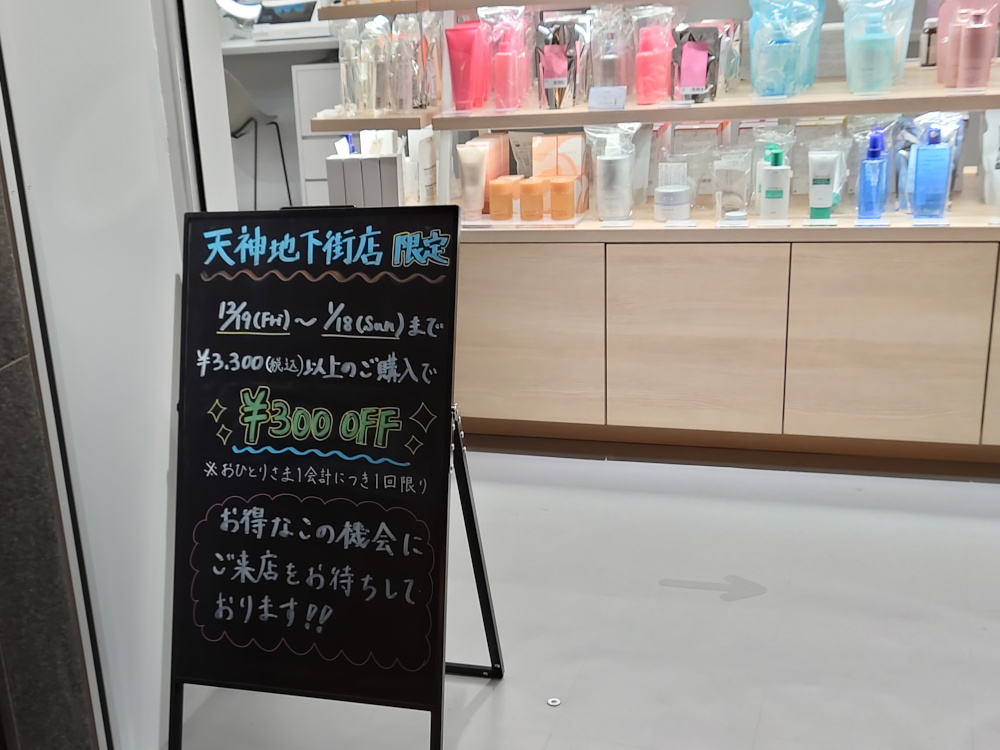 天神地下街店 限定
12/19(Fri)～1/18(Sun)まで
¥3.300(税込)以上のご購入で
¥300 OFF
※おひとりさま1会計につき1回限り
お得なこの機会に
ご来店をお待ちして
おります!!